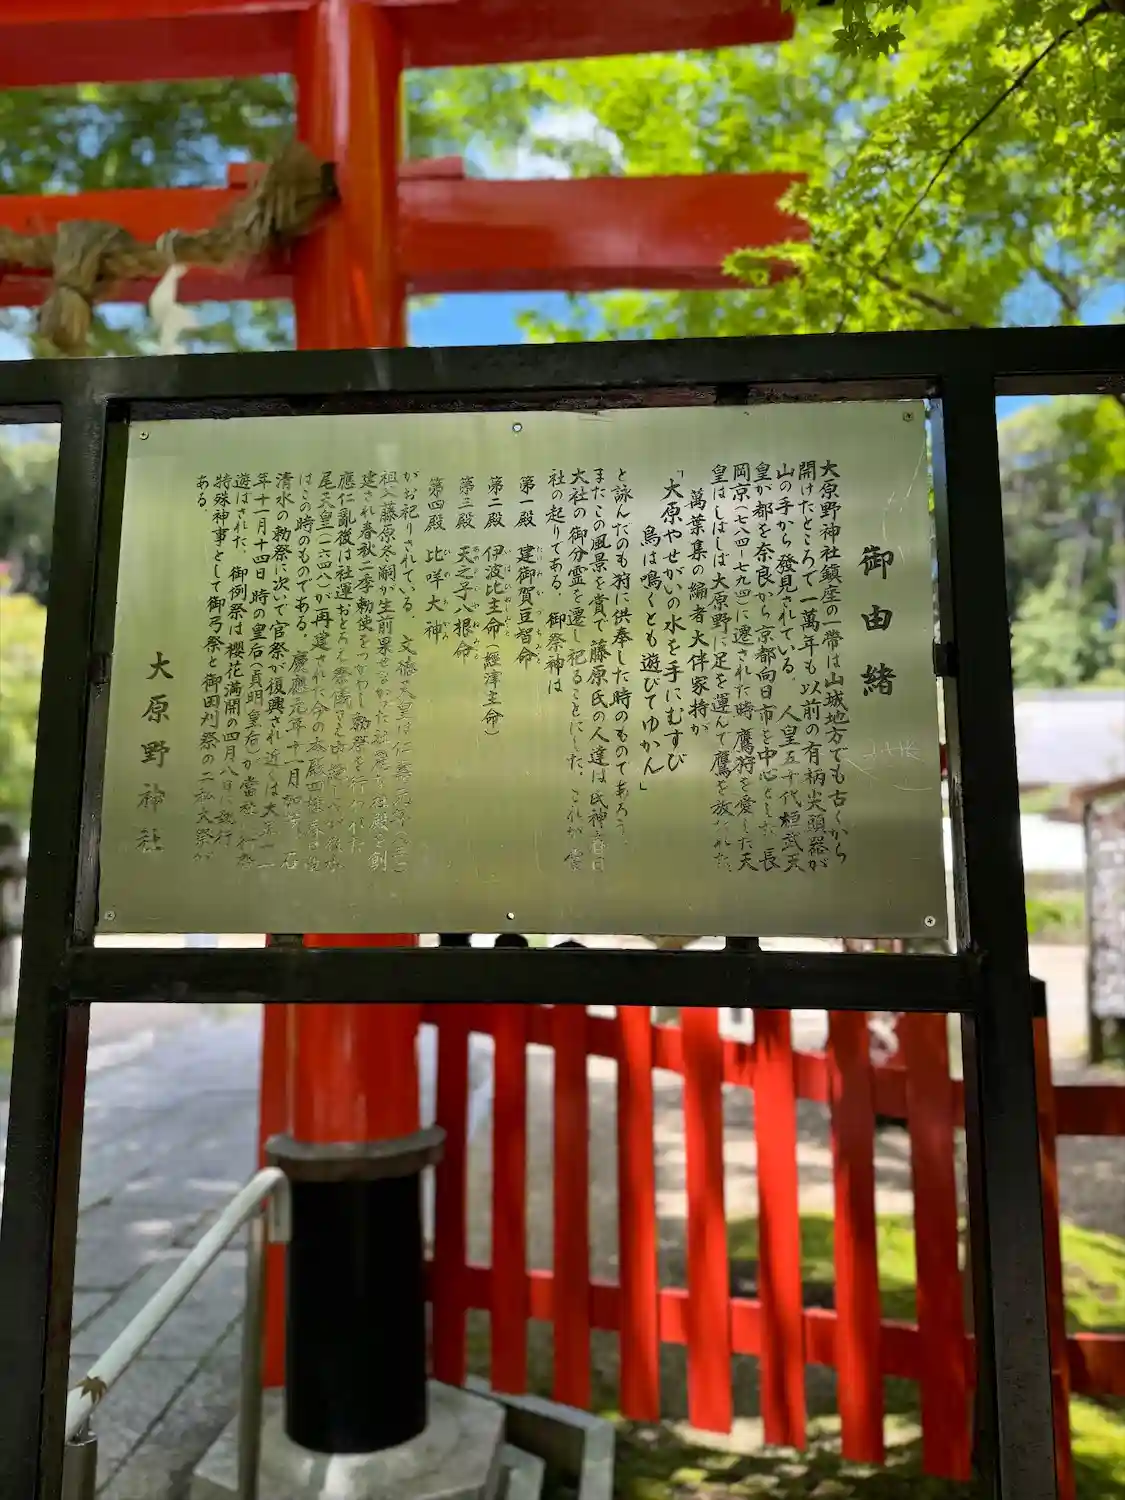 御由緒
大原野神社鎮座の一帯は山城地方でも古くから
開けたところで一萬年も以前の有柄尖頭器が
山の手から發見されている。人皇五十代桓武天
皇が都を奈良から京都向日市を中心とした長
岡京(七八四ー七九四)に遷された時鷹狩を愛した天
皇はしばしば大原野に足を運んで鷹を放たれた。
萬葉集の編者大伴家持が
「大原やせがいの水を手にむすび
鳥は鳴くとも遊びてゆかん」
と詠んだのも狩に供奉した時のものであろう。
またこの風景を賞で藤原氏の人達は氏神春日
大社の御分霊を遷し祀ることにした、これが當
社の起りである 御祭神は
第一殿 建御賀豆智命
第二殿 伊波比主命(經津主命)
第三殿 天之子八根命
第四殿 比咩大神
がお祀りされている。文徳天皇は
祖父藤原冬嗣が生前果せなかった社殿を創
建され春秋二季勅使をつかわし勅祭を行われた
應仁亂後は社運おとろえ祭儀さえ
尾天皇(一六四八)が再建された今の本殿四棟
はこの時のものである。慶應元年十一月
清水の勅祭に次いで官祭が復興され近くは大正十一
年十一月十四日時の皇后(貞明皇后)が當社へ行啓
遊ばされた、御例祭は櫻花満開の四月八日に執行
特殊神事として御弓祭と御田刈祭の二大祭が
ある
大原野神社